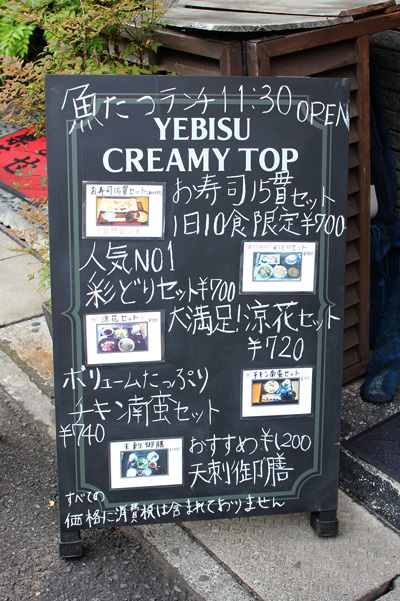 魚たつランチ11:30 OPEN
YEBISU
CREAMY TOP
お寿司15貫セット
お寿司15貫セット
1日10食限定¥700
人気NO1
彩どりセット
彩どりセット¥700
涼花セット
大満足!涼花セット
¥720
ボリュームたっぷり
チキン南蛮セット
チキン南蛮セット
¥740
天刺御膳
おすすめ¥1,200
天刺御膳
すべての
価格に消費税は含まれておりません